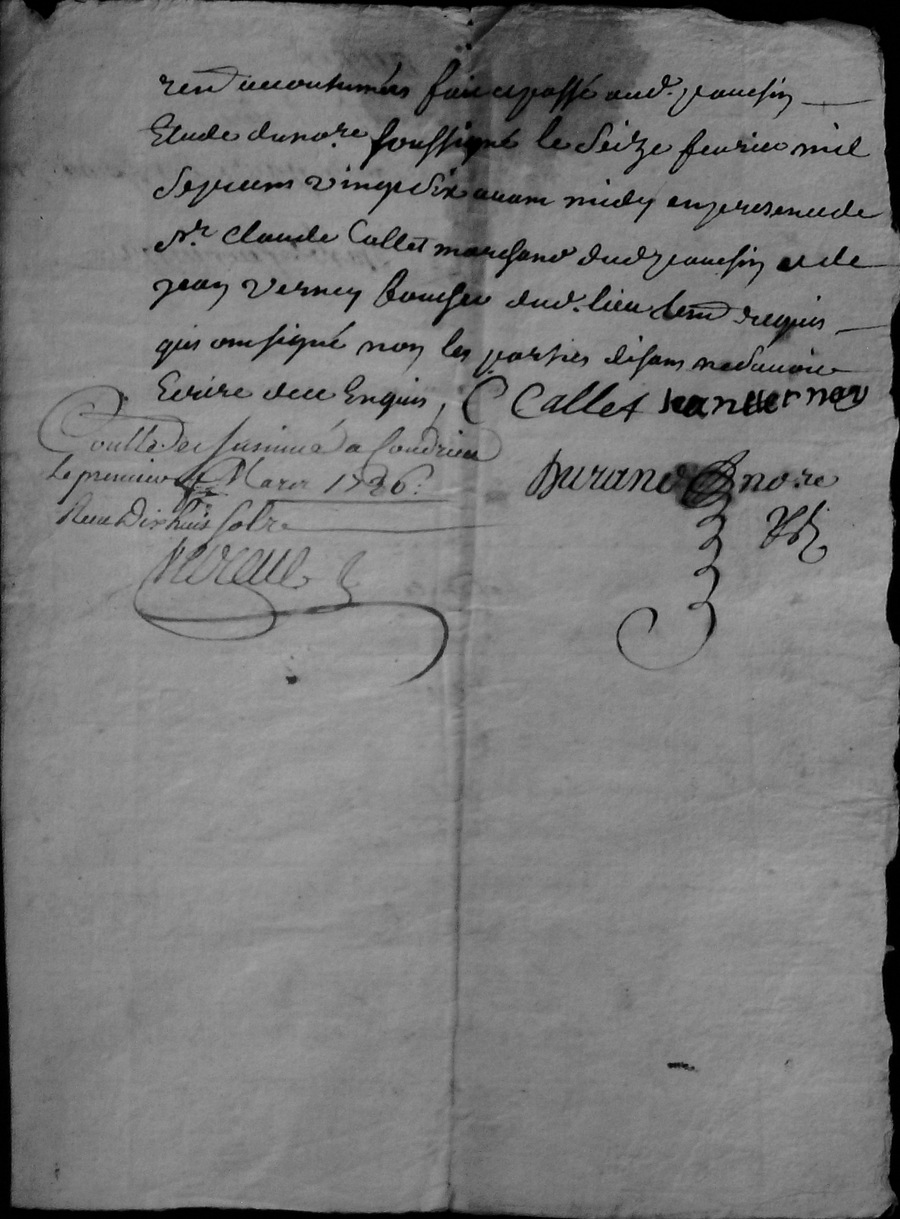 accoutumées fait et passé aud. peaussin
Etude du no.re soussigné le seize fevrier mil
sept cens vingt six avant midy en presence de
Sr. Claude Callet marchand dud peaussin et de
jean verney boucher dud. lieu tem requis
qui ont signé non les parties disans ne scavoir
Ecrire de ce Enquis,
C Callet jean verney
Controllé et Insinué a Condrieu
Le premier Mars 1726.
Receu Dix huit sols
Durand no.re